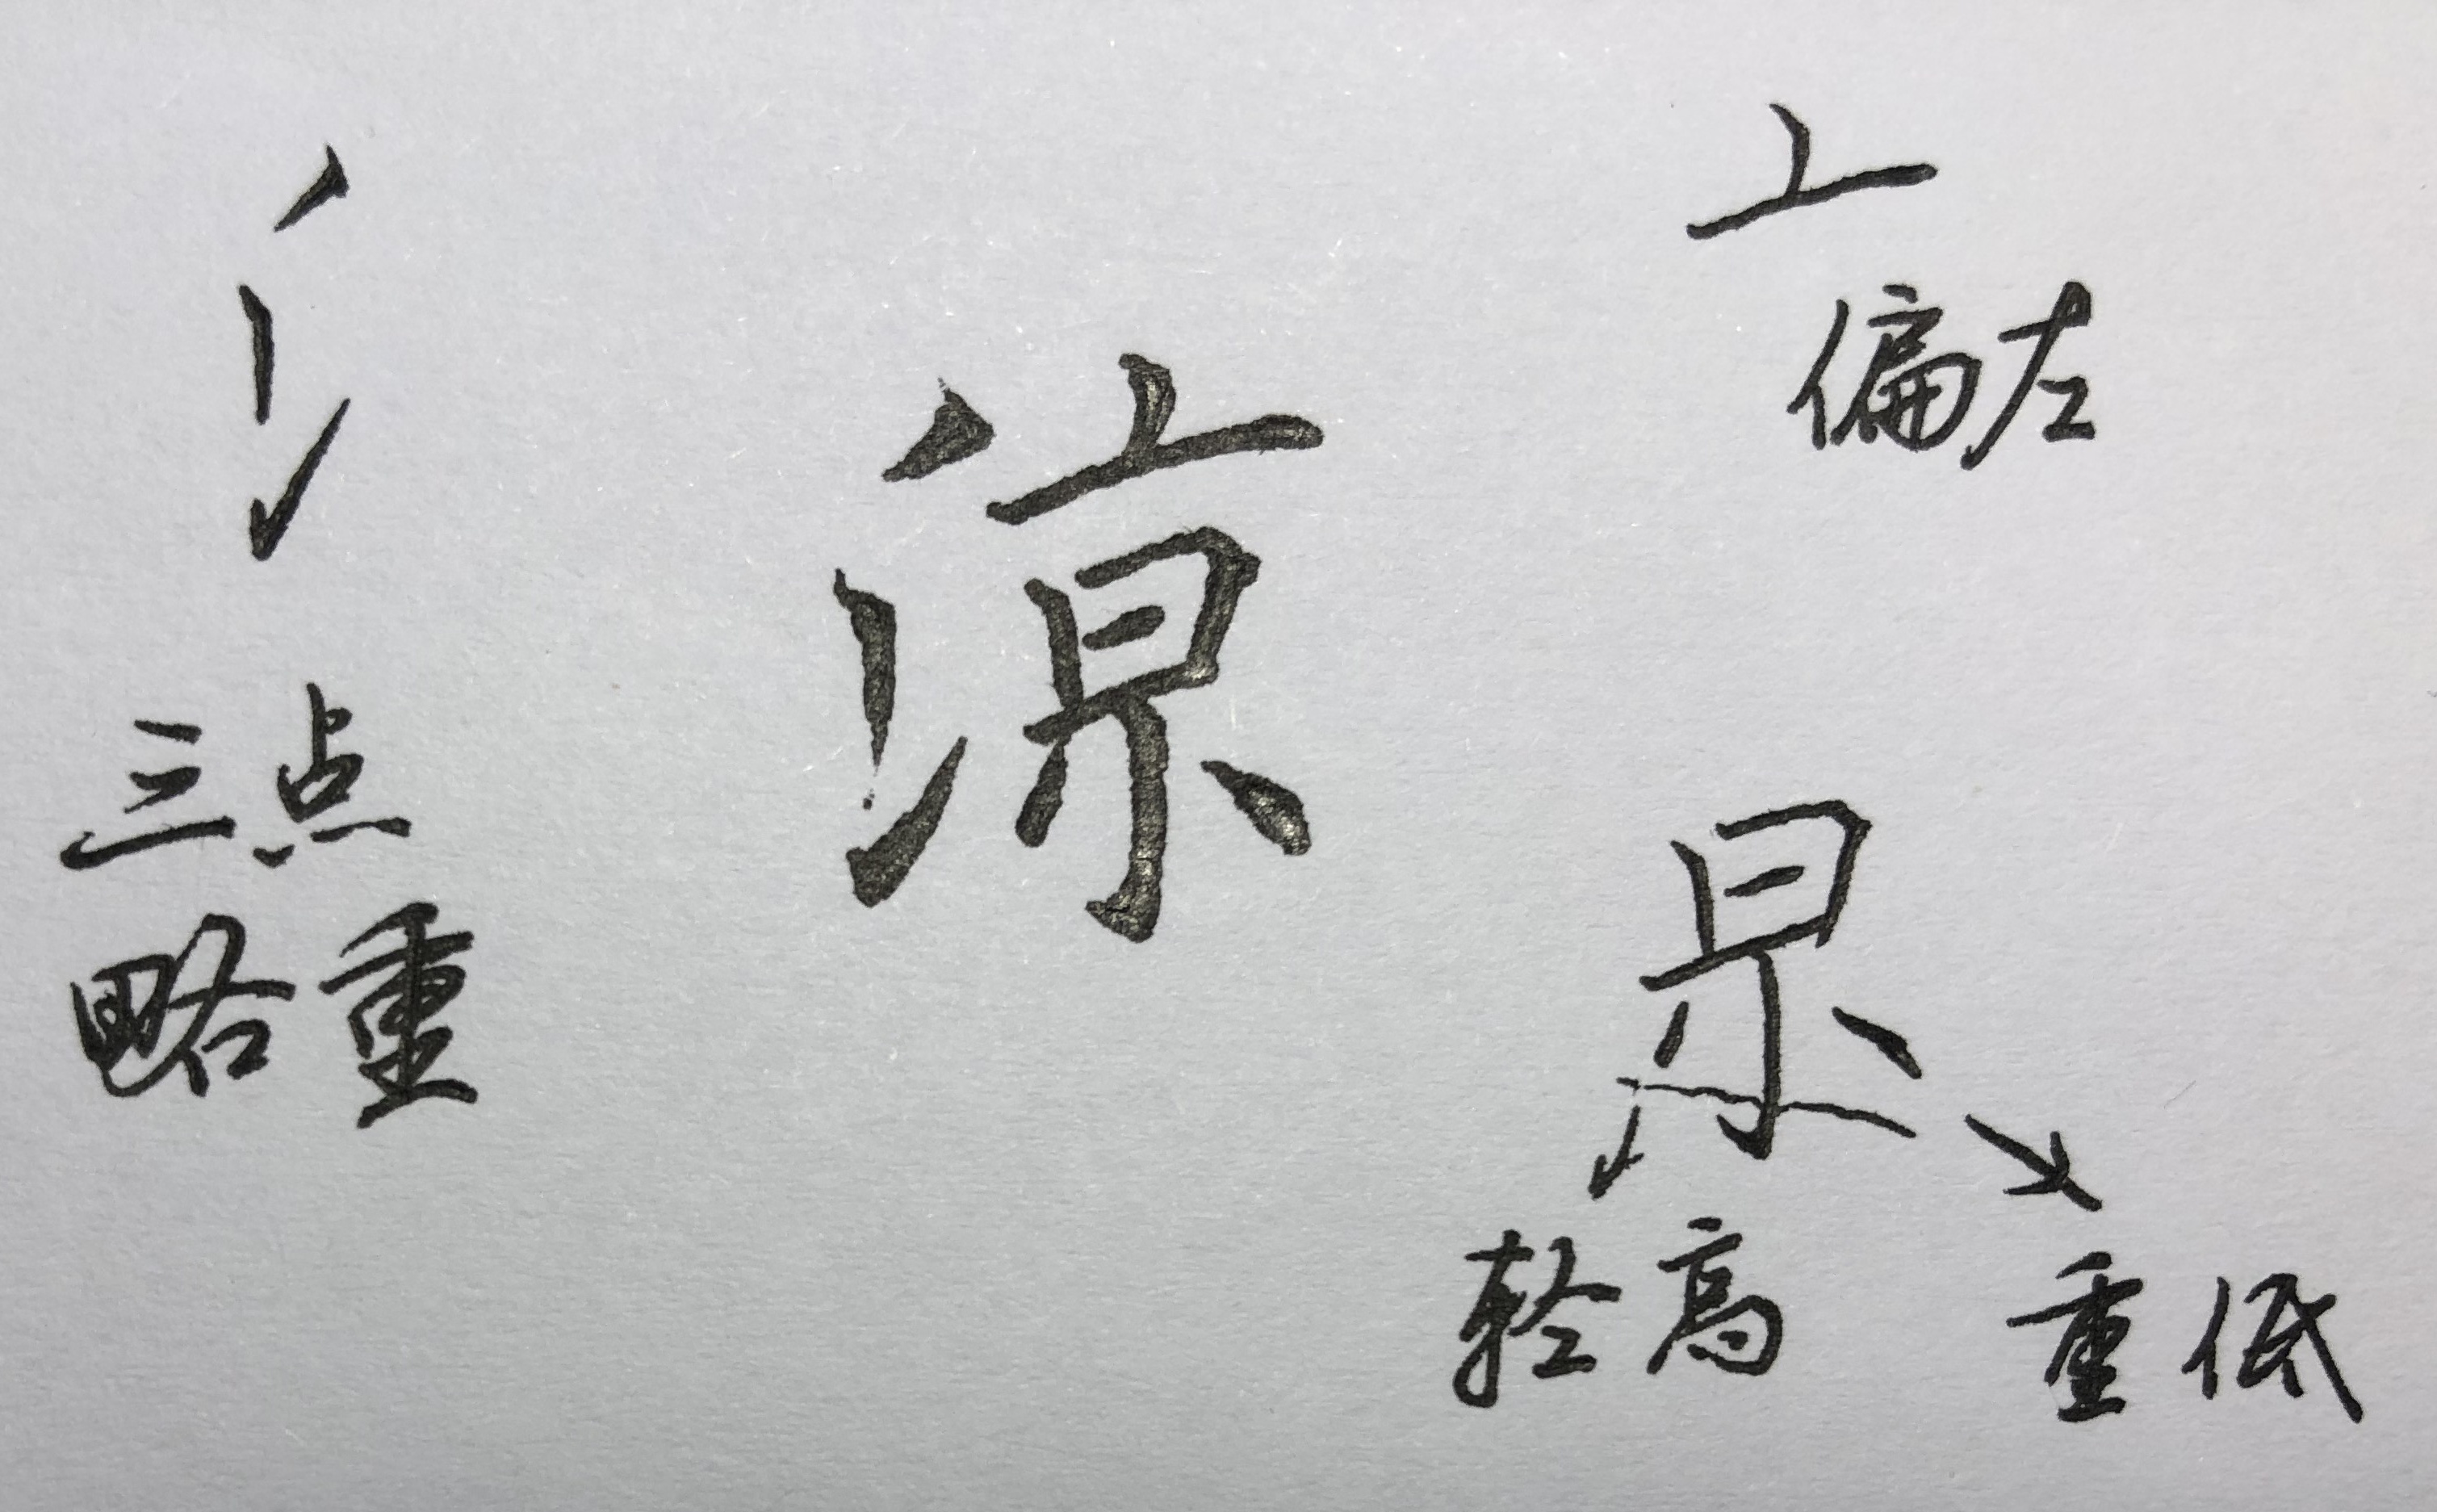 氵
三点
略重
涼
亠
偏左
轻高
重低